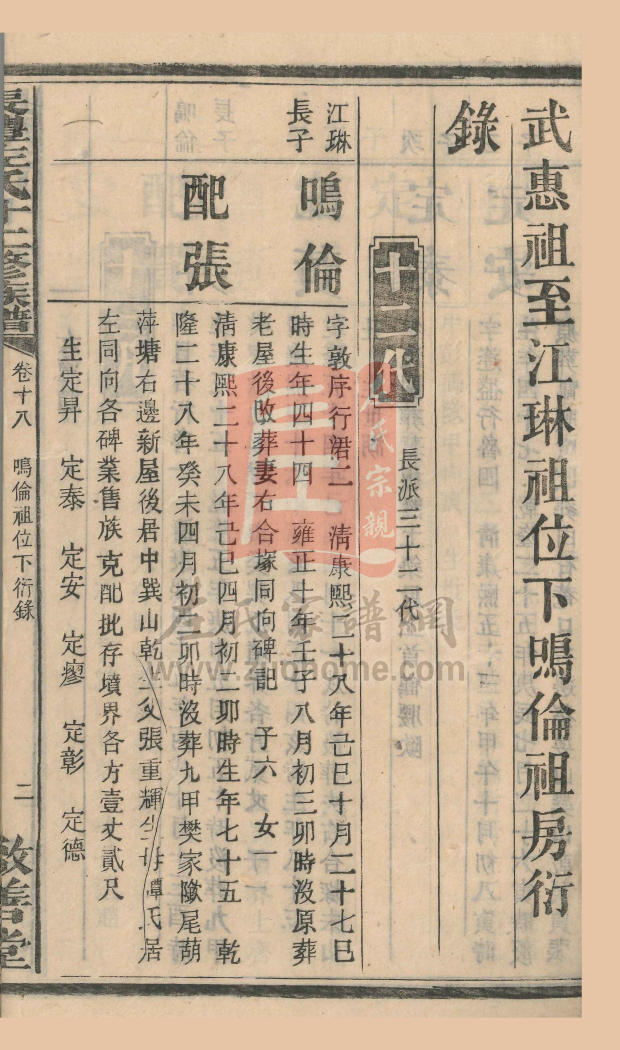 武惠祖至江琳祖位下鳴倫祖房衍
錄
十二代
長派三十二代
江琳
長子
鳴倫
字敦序行浯二 清康熙二十八年己巳十月二十七巳
時生年四十四 雍正十年壬子八月初三卯時沒原葬
老屋後改葬妻右合塚同向碑記 子六 女一
配張
清康熙二十八年己巳四月初二卯時生年七十五 乾
隆二十八年癸未四月初二卯時沒葬九甲樊家隞尾葫
萍塘右邊新屋後居中巽山乾 父張重輝 氏居
左同向各碑業售族克配批存墳界各方壹丈貳尺
生定昇 定泰 定安 定廖 定彰 定德
氏十二修族譜
卷十八 鳴倫祖位下衍錄
二
敦善堂
左氏宗親
左氏家譜網
www.zuohome.com